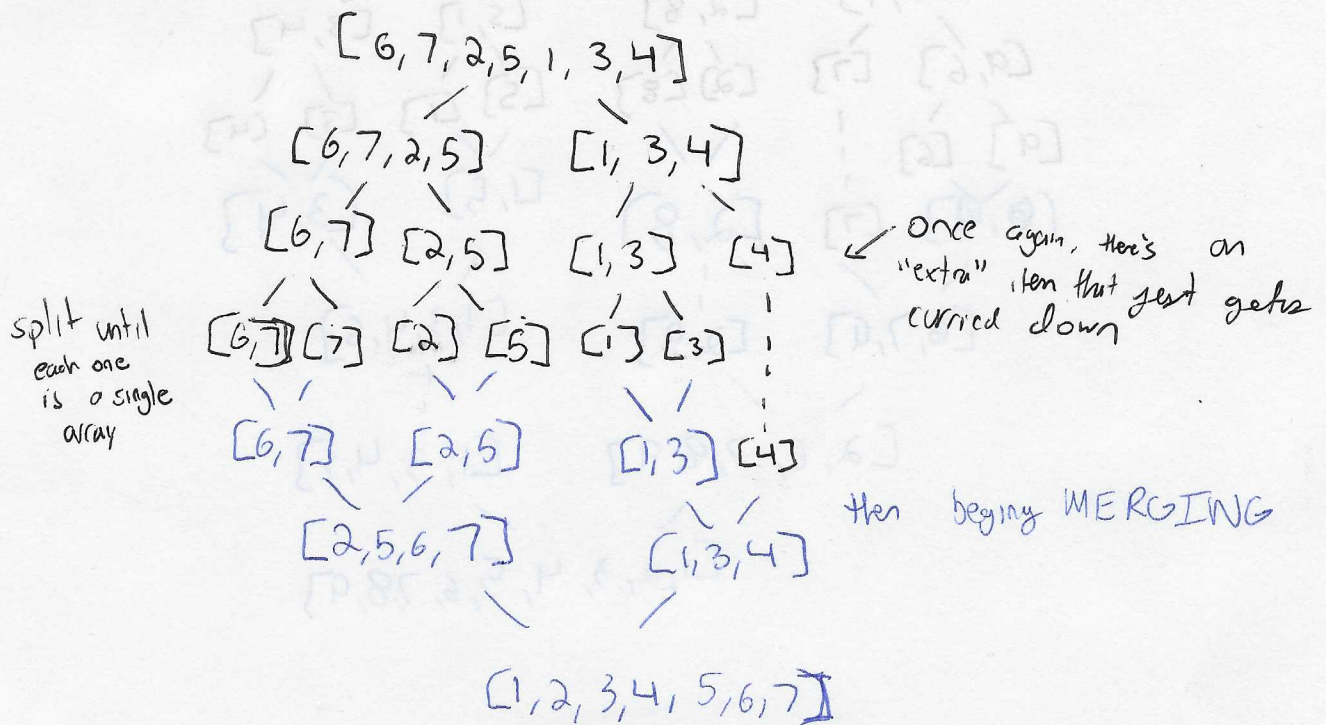 [6,7,2,5,1,3,4]
[6,7,2,5] [1,3,4]
[6,7] [2,5] [1,3] [4]
once again, there's an
"extra" item that jest gets
curried down
split until
each one
is a single
array
[6] [7] [2] [5] [1] [3]
[6,7] [2,5] [1,3] [4]
then beging MERGING
[2,5,6,7] [1,3,4]
[1,2,3,4,5,6,7]